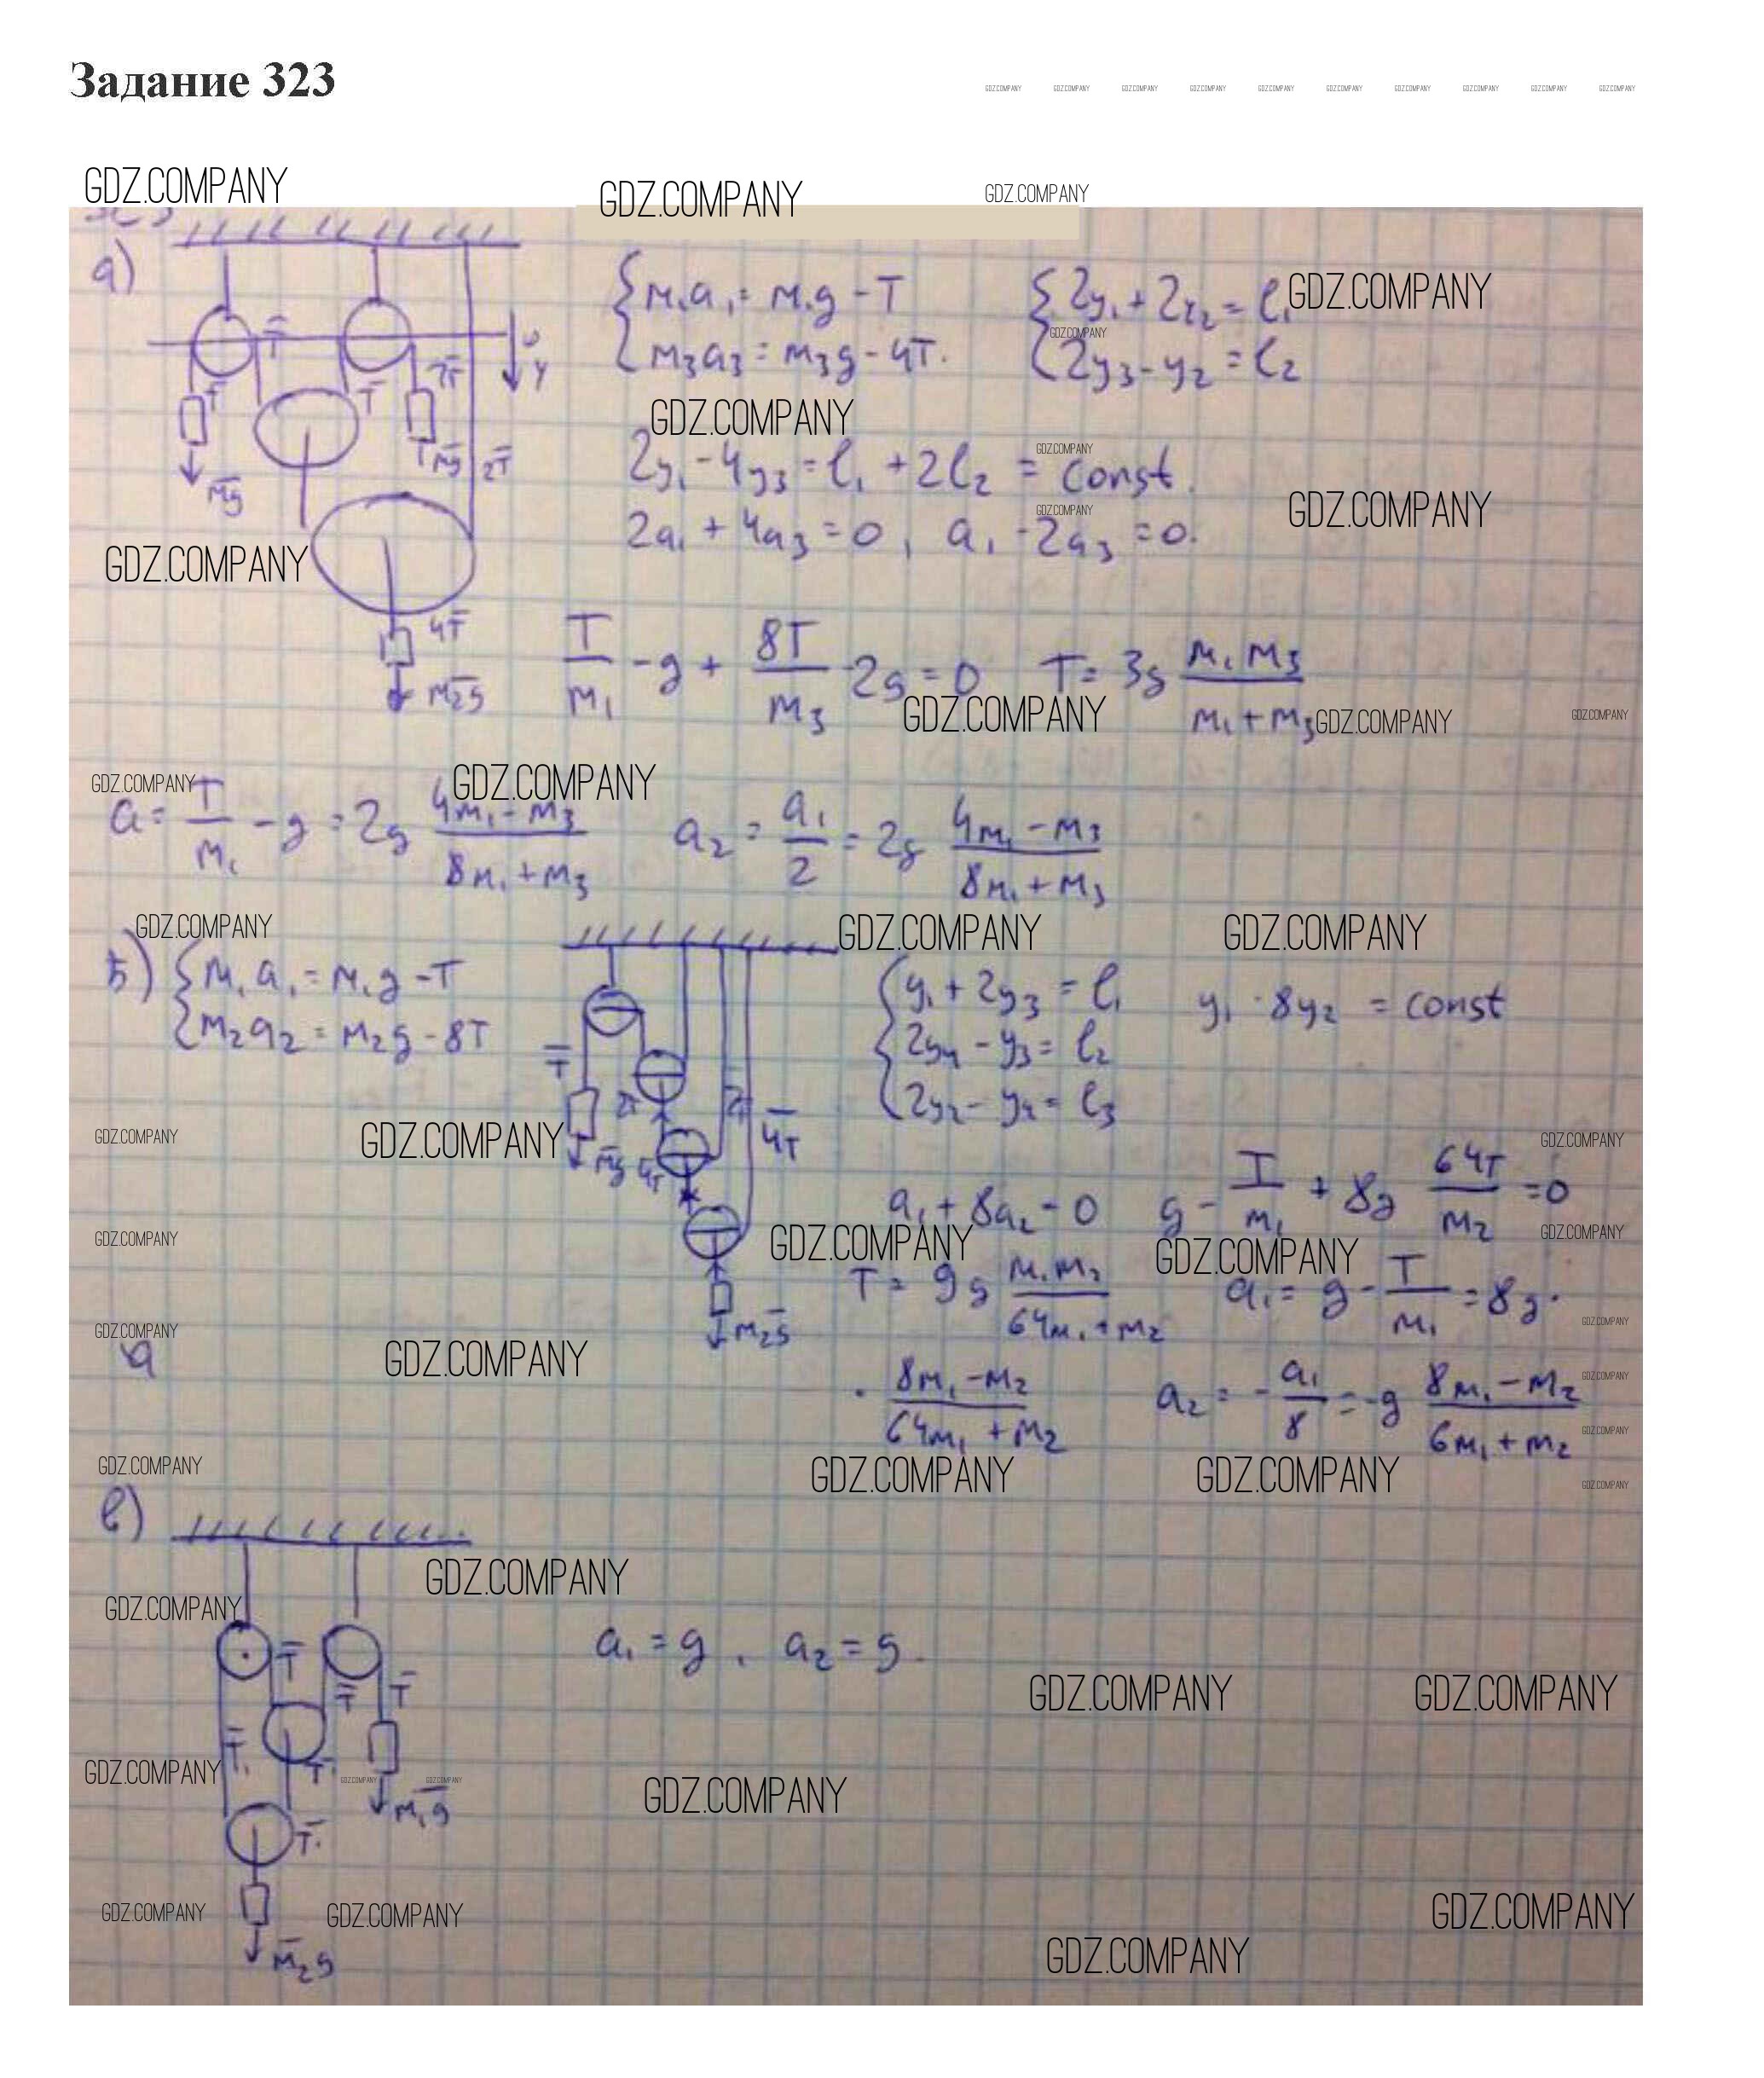 Задание 323
GDZ.COMPANY GDZ.COMPANY GDZ.COMPANY GDZ.COMPANY GDZ.COMPANY GDZ.COMPANY GDZ.COMPANY GDZ.COMPANY GDZ.COMPANY GDZ.COMPANY
GDZ.COMPANY GDZ.COMPANY GDZ.COMPANY
а)
m₁a₁ = m₁g - T
2y₁ + 2y₂ = l₁ GDZ.COMPANY
GDZ.COMPANY
m₃a₃ = m₃g - 4T.
2y₃ - y₂ = l₂
T T T 2T y
GDZ.COMPANY
GDZ.COMPANY
mg mg 2T
2y₁ - 4y₃ = l₁ + 2l₂ = const.
GDZ.COMPANY
GDZ.COMPANY
2a₁ + 4a₃ = 0, a₁ - 2a₃ = 0.
GDZ.COMPANY
4T
m₂g
T/m₁ - g + 8T/m₃ - 2g = 0 T = 3g m₁m₃/(m₁ + m₃)
GDZ.COMPANY GDZ.COMPANY GDZ.COMPANY
GDZ.COMPANY GDZ.COMPANY
a = T/m₁ - g = 2g (4m₁ - m₃)/(8m₁ + m₃) a₂ = a₁/2 = 2g (4m₁ - m₃)/(8m₁ + m₃)
GDZ.COMPANY GDZ.COMPANY GDZ.COMPANY
б) m₁a₁ = m₁g - T
m₂a₂ = m₂g - 8T
y₁ + 2y₃ = l₁ y₁ - 8y₂ = const
2y₄ - y₃ = l₂
2y₂ - y₄ = l₃
T 2T 2T 4T
GDZ.COMPANY GDZ.COMPANY GDZ.COMPANY
mg 4T
a₁ + 8a₂ = 0 g - T/m₁ + 8g 64T/m₂ = 0
GDZ.COMPANY GDZ.COMPANY GDZ.COMPANY GDZ.COMPANY
T = 9g m₁m₂/(64m₁ + m₂) a₁ = g - T/m₁ = 8g ·
m₂g
GDZ.COMPANY GDZ.COMPANY
a
GDZ.COMPANY GDZ.COMPANY
· (8m₁ - m₂)/(64m₁ + m₂) a₂ = - a₁/8 = -g (8m₁ - m₂)/(6m₁ + m₂)
GDZ.COMPANY
GDZ.COMPANY GDZ.COMPANY GDZ.COMPANY GDZ.COMPANY
в)
GDZ.COMPANY
GDZ.COMPANY
a₁ = g, a₂ = g.
T T T
GDZ.COMPANY GDZ.COMPANY
T₁ T
GDZ.COMPANY GDZ.COMPANY GDZ.COMPANY GDZ.COMPANY
m₁g
T
GDZ.COMPANY GDZ.COMPANY GDZ.COMPANY
m₂g
GDZ.COMPANY